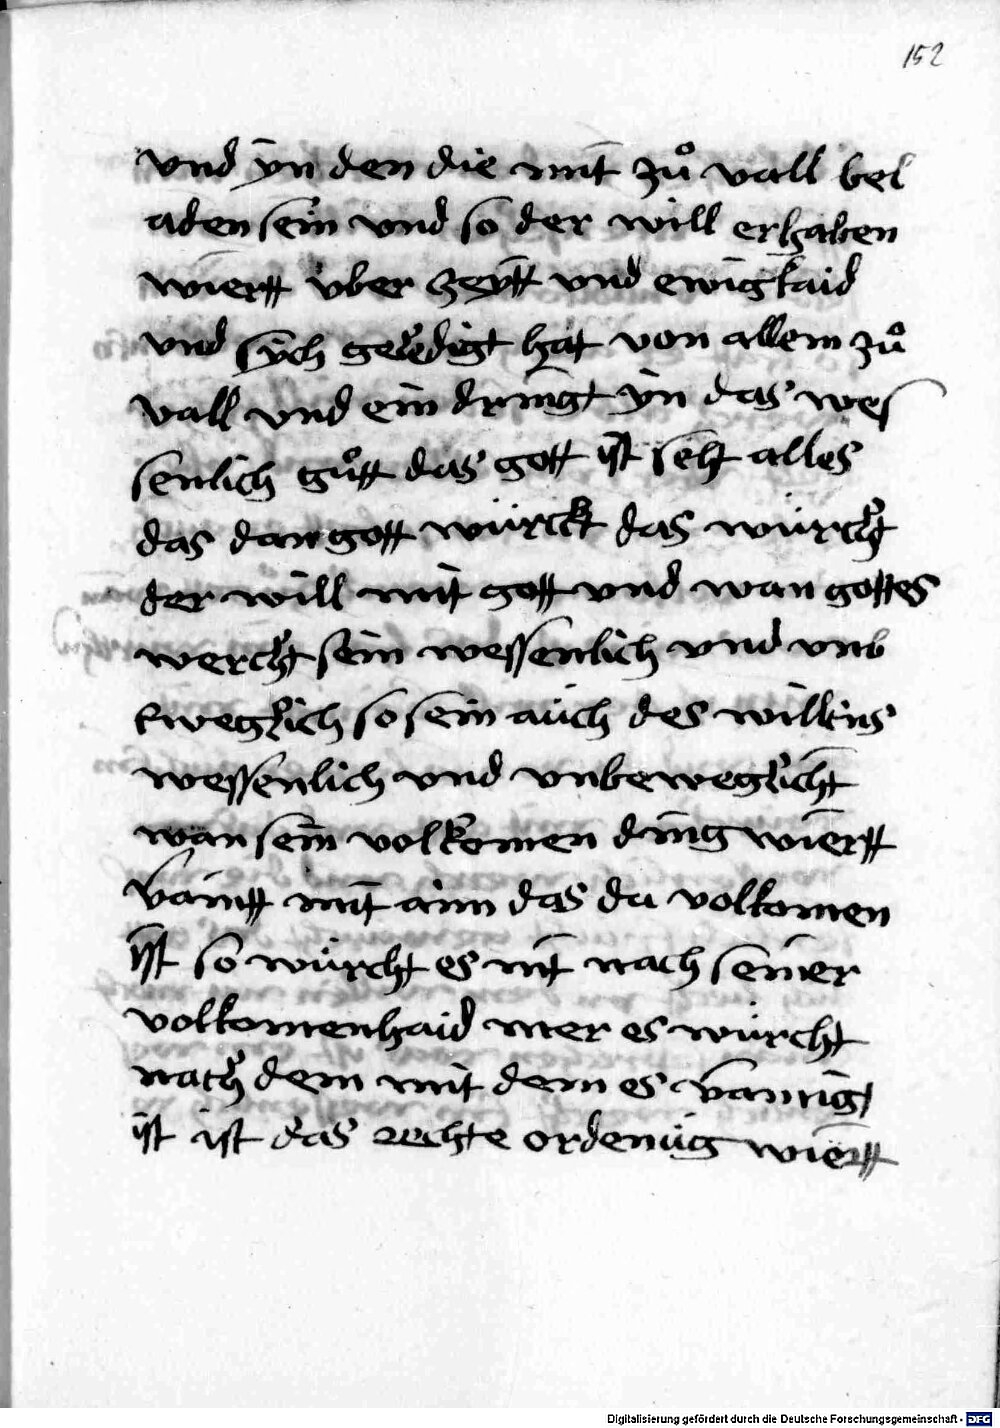 152
vnd yn den die mit zů vall bel
aden sein vnd so der will erhaben
wiertt vber zeytt vnd ewigkaid
vnd sych geledigt hat von allem zů
vall vnd ein dringt yn das wes
senlich gůtt das gott ist seht alles
das dan gott würckt das würcht
der will mit gott vnd wan gottes
werch sein wessenlich vnd vnb
eweglich so sein auch des willins
wessenlich vnd vnbeweglicht
wan sein volkomen ding wiertt
vamtt mit aim das da volkomen
ist so würcht es nit nach seiner
volkomenhaid mer es würcht
nach dem mit dem es vanigt
ist ist das rechte ordenug wiertt
Digitalisierung gefördert durch die Deutsche Forschungsgemeinschaft - DFG